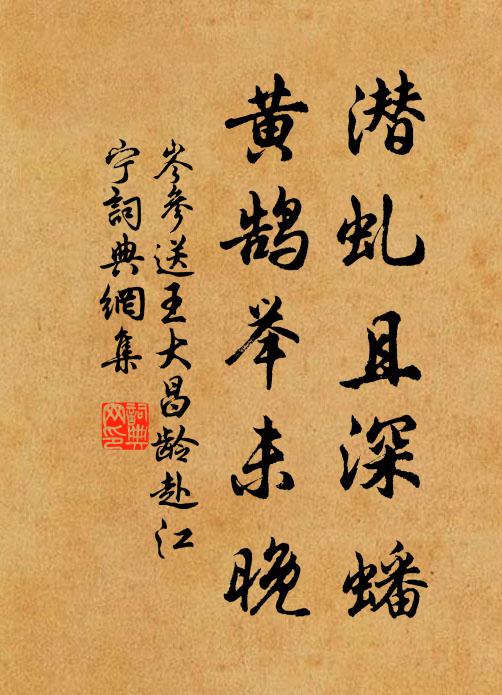 潜虬且深蟠
黄鹄举未晚
岑参送王大昌龄赴江
宁词典网集
詞典
网印